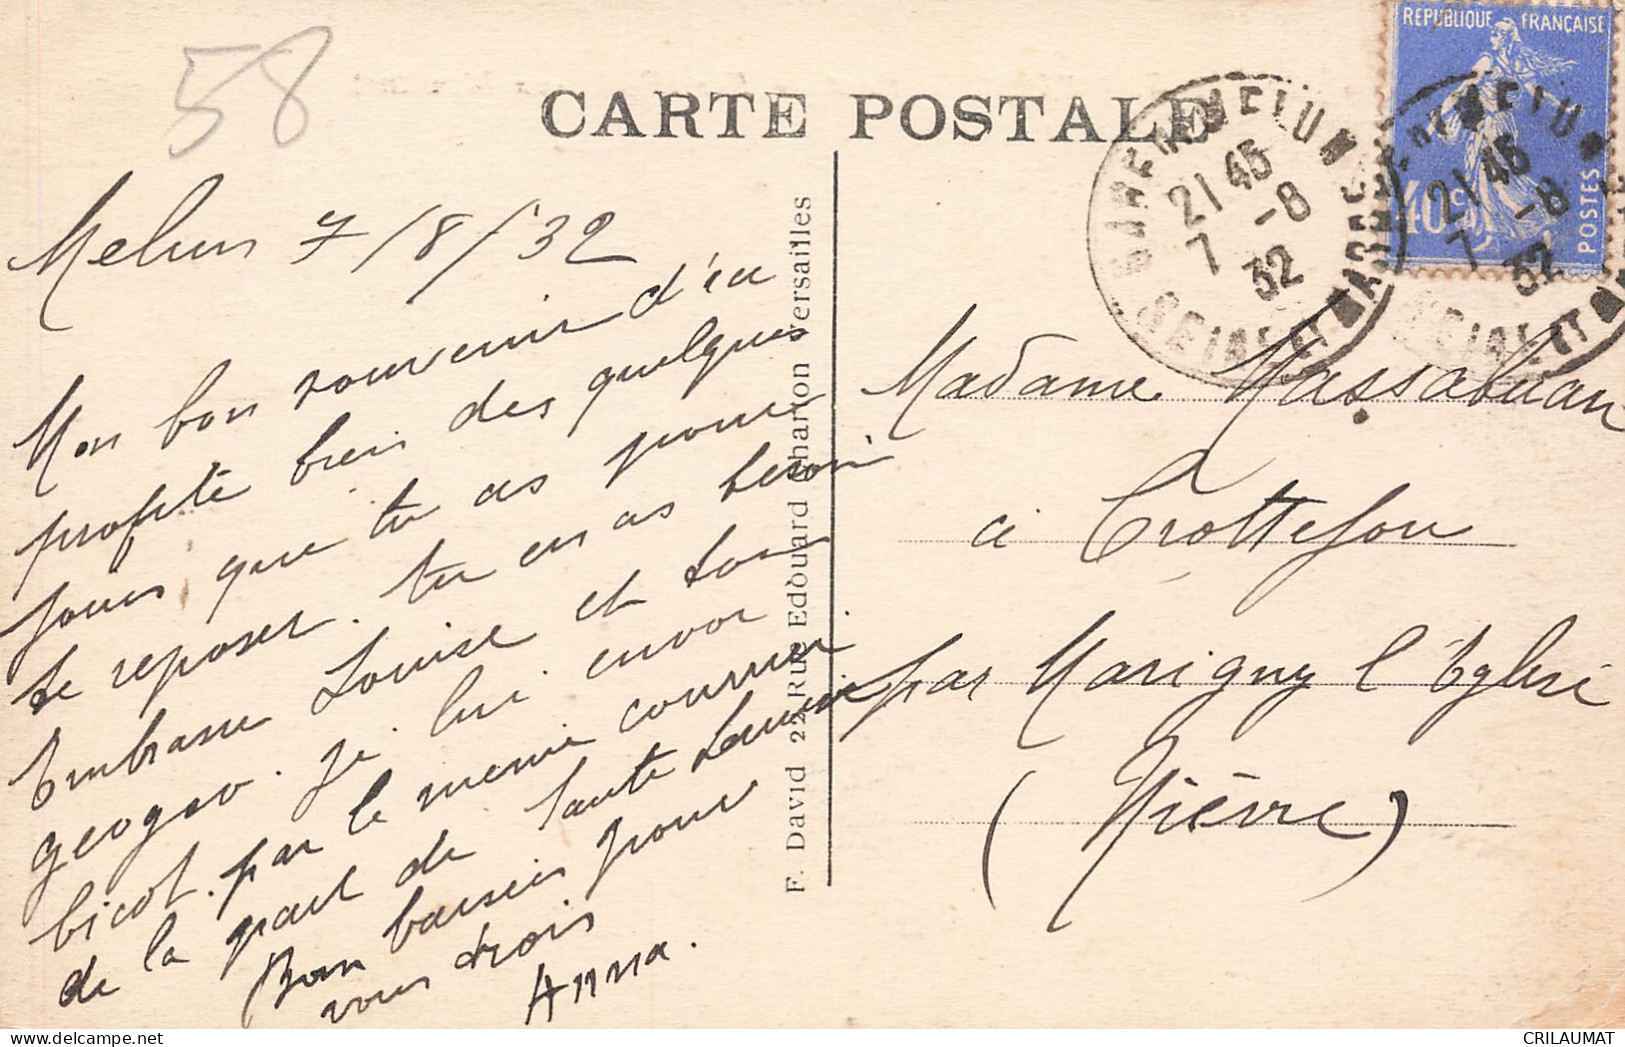 58
CARTE POSTALE
REPUBLIQUE FRANÇAISE
40c
POSTES
GARE DE MELUN
21 45
7 -8
32
SEINE ET MARNE
GARE DE MELUN
21 45
7 -8
32
SEINE ET MARNE
Melun 7/8/32
Mon bon souvenir d'ici
profite bien des quelques
jours que tu as pour
te reposer. tu en as besoin
Embrasse Louise et son
geogeo. je lui envoi
bicot. par le meme courrier
de la part de tante Louise
Bon baisers pour
vous trois
Anna.
F. David 22 Rue Edouard Charton Versailles
Madame Massabuau
à Crottefou
par Marigny l'Eglise
(Nièvre)
CRILAUMAT